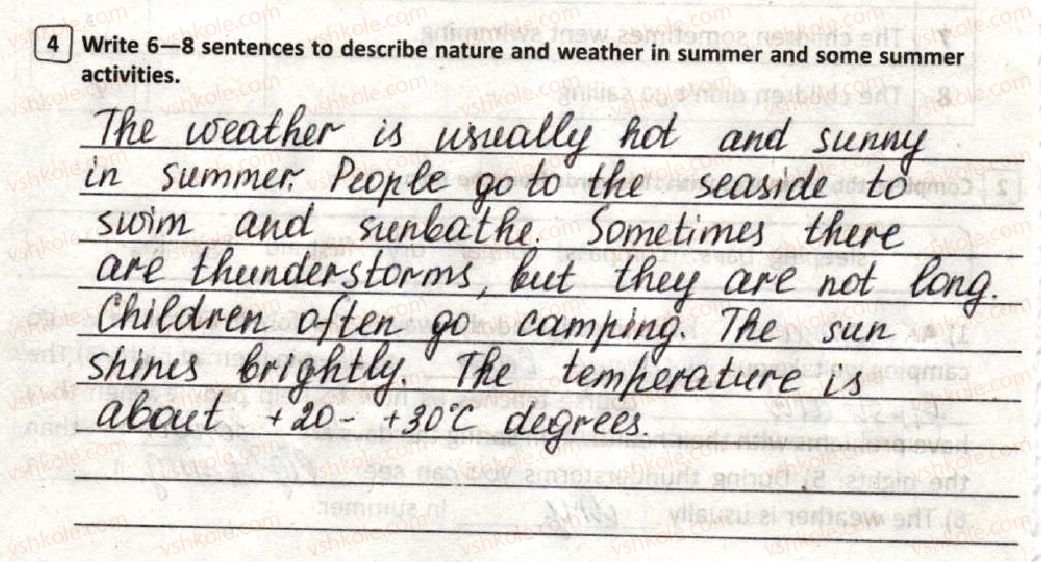 4 Write 6—8 sentences to describe nature and weather in summer and some summer
activities.
The weather is usually hot and sunny
in summer. People go to the seaside to
swim and sunbathe. Sometimes there
are thunderstorms, but they are not long.
Children often go camping. The sun
shines brightly. The temperature is
about +20 - +30°C degrees.
vshkole.com